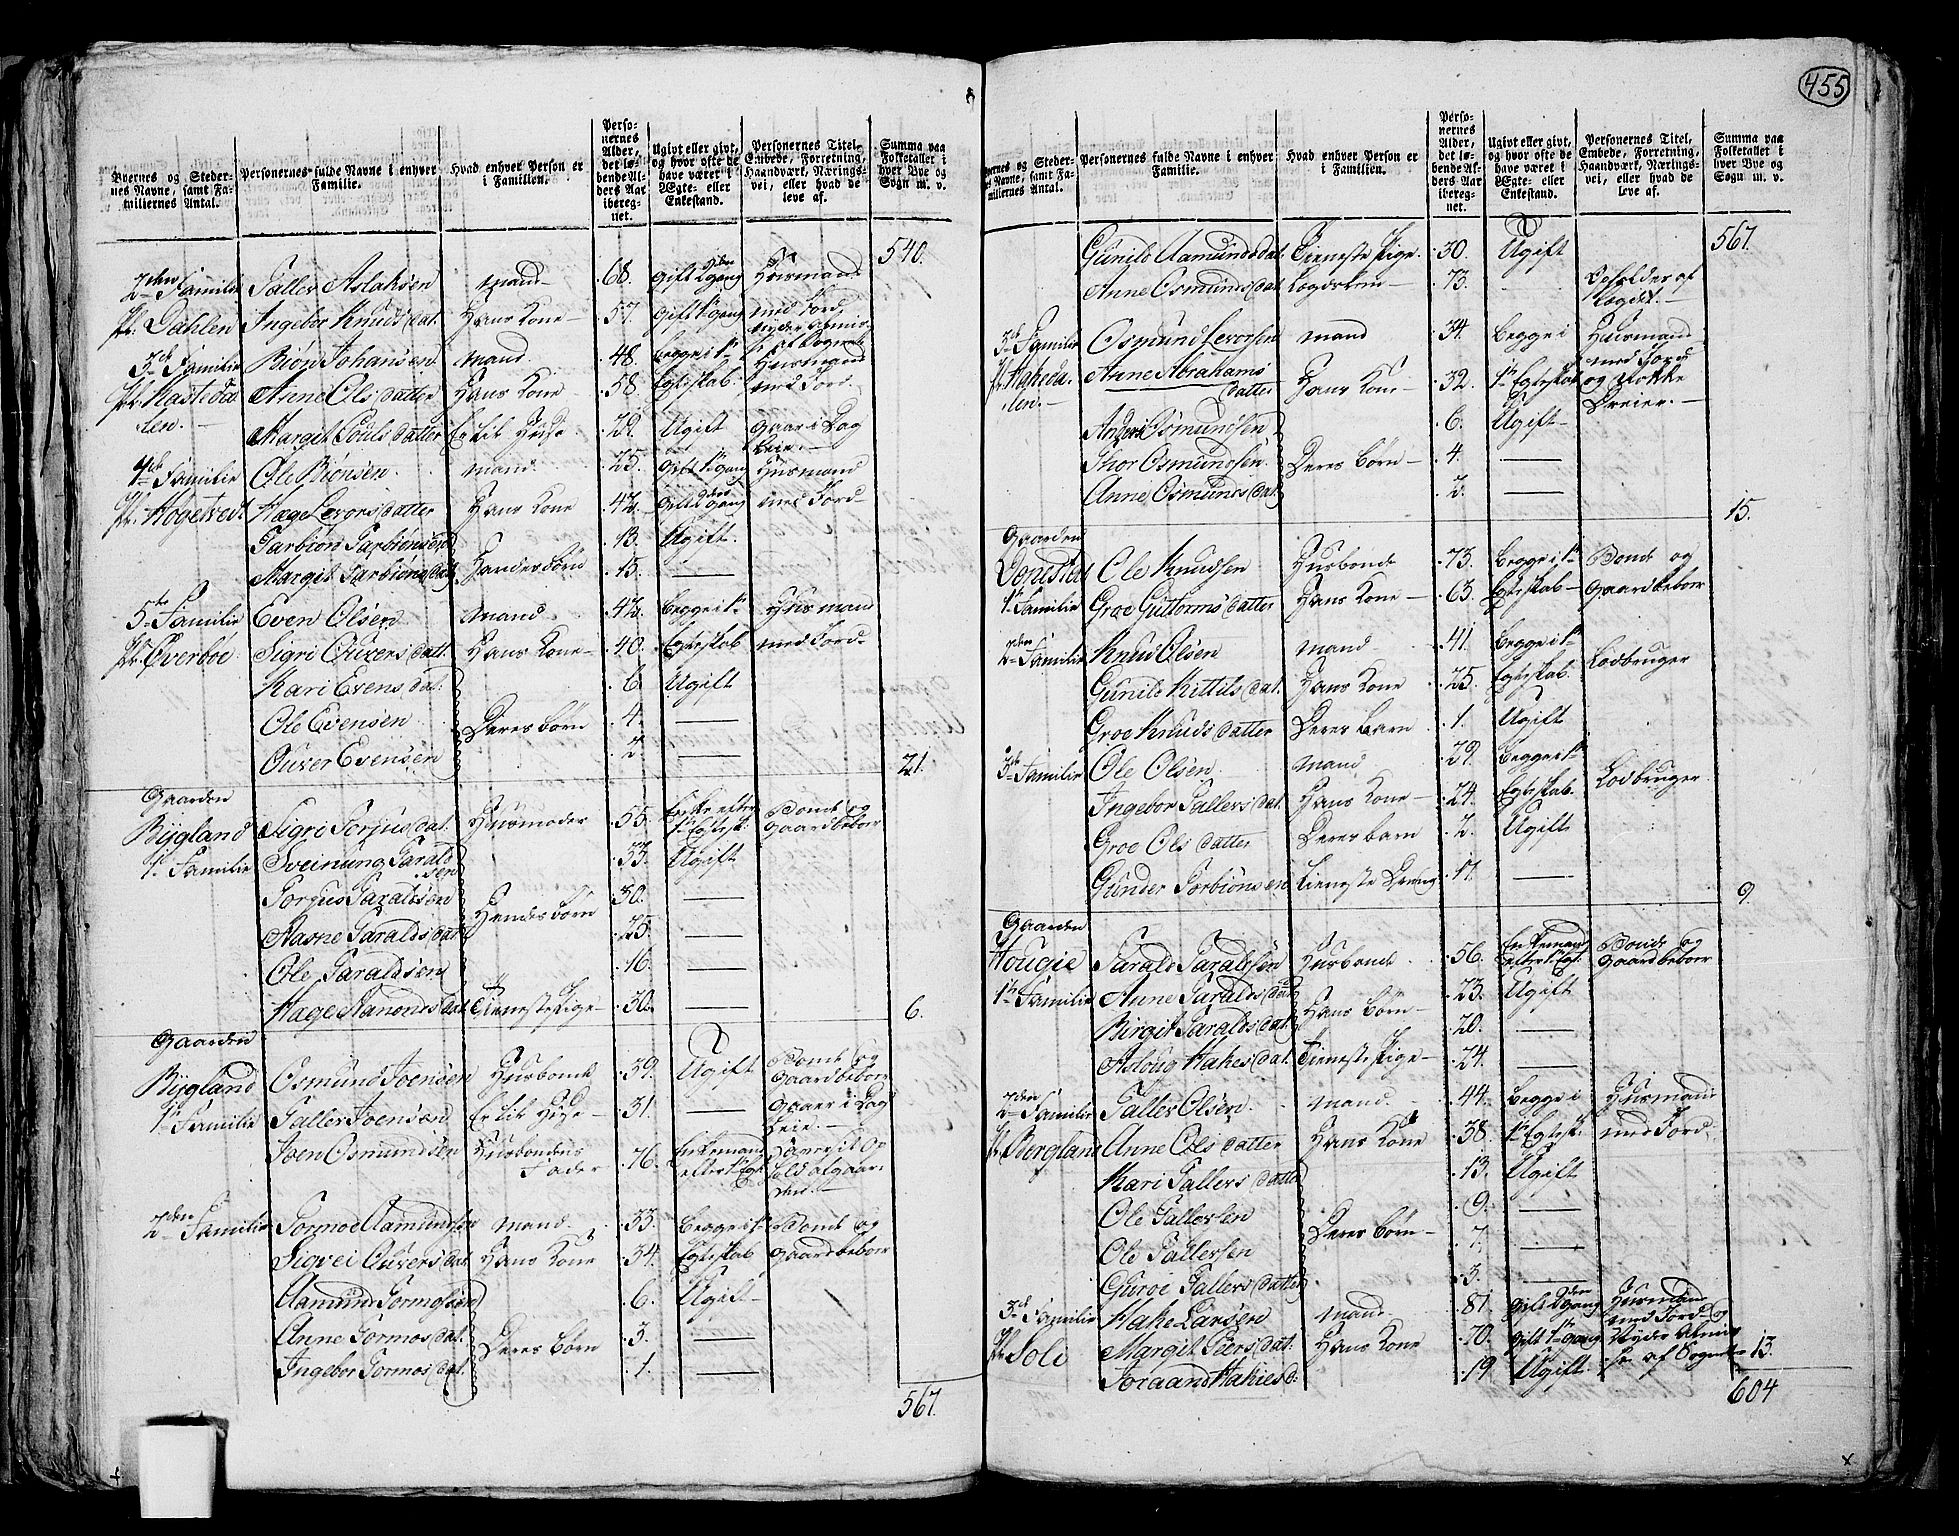 455
Byernes og Steder-
nes Navne, samt Fa-
miliernes Antal.
Personernes fulde Navne i enhver
Familie.
Hvad enhver Person er
i Familien.
Perso-
nernes
Alder,
det lø-
bende Al-
ders Aar
iberegnet.
Ugivt eller givt,
og hvor ofte de
have været i
Ægte- eller
Enkestand.
Personernes Titel,
Embede, Forretning,
Haandværk, Nærings-
vei, eller hvad de
leve af.
Summa paa
Folketallet i
hver Bye og
Sogn m. v.
540.
2den Familie Taller Aslaksen Mand 68. Gift 2den gang Huusmand
Pl. Dahlen Ingebor Knuds dat. Hans Kone 57. Gift 1te gang med Jord,
nyder Almis-
se af Sognet
3de Familie Biøn Johansen Mand. 48. Begge i 1te Huusmand
Pl. Kasteda- Anne Ols datter Hans Kone 58. Egteskab. med Jord.
len. Margit Pouls datter Er til Huse 29. Ugift Gaar i Dag
Leie.
4de Familie Ole Biønsen. Mand. 25. Gift 1te gang Huusmand
Pl. Høgetvedt Hæge Levors datter Hans Kone 42. Gift 2den gang med Jord
Tarbiøn Tarbiønsen 13. Ugift.
Margit Tarbiøns dat. Hendes børn 15. —
5te Familie Even Olsen Mand. 42. Begge i 1te Huusman
Pl. Overboe. Sigri Ouvers datt. Hans Kone 40. Egteskab med Jord.
Kari Evens dat. 6. Ugift
Ole Evensen Deres børn 4. —
Ouver Evensen 2. —
21.
Gaarden
Bygland Sigri Torjus dat. Huusmoder 55. Enke efter Bonde og
1te Egtesk. Gaardbeboer
1te Familie Sveinung Tarald-
sen 33. Ugift
Torjus Taraldsen 30. —
Aasne Taralds dat. Hendes børn 25. —
Ole Taraldsen 16. —
Hæge Aanons dat. Tieneste Pige 30. —
6.
Gaarden
Bygland Osmund Joensen Huusbonde 39. Ugift Bonde og
Gaardbeboer
1te Familie Taller Joensen Er til Huse 31. — Gaaer i Dag
Leie.
Joen Osmundsen Huusbondens
Fader 76. Enkemand
efter 1te Egt.
2den Familie Tormoe Aamundsen Mand. 33. Begge i 1te Bonde og
Sigvei Ouvers dat. Hans Kone 34. Egteskab Gaardbeboer
Aamund Tormosen 6. Ugift
Anne Tormos dat. Deres børn 3. —
Ingebor Tormos dat. 1. —
567.
Byernes og Steder-
nes Navne, samt Fa-
miliernes Antal.
Personernes fulde Navne i enhver
Familie.
Hvad enhver Person er
i Familien.
Perso-
nernes
Alder,
det lø-
bende Al-
ders Aar
iberegnet.
Ugivt eller givt,
og hvor ofte de
have været i
Ægte- eller
Enkestand.
Personernes Titel,
Embede, Forretning,
Haandværk, Nærings-
vei, eller hvad de
leve af.
Summa paa
Folketallet i
hver Bye og
Sogn m. v.
567.
Gunild Aamunds dat. Tieneste Pige 30. Ugift
Anne Osmunds dat. Lægdslem 73. Beholdes af
Lægdet.
3de Familie Osmund Levorsen Mand 34. Begge i Huusmand
Pl. Hakeda- Anne Abrahams
datter Hans Kone 32. 1te Egteskab med Jord
og Rokke
Dreier.
len. Anders Osmundsen 6. Ugift
Thor Osmundsen. Deres børn 4. —
Anne Osmunds dat. 2. —
15.
Gaarden
Ole Knudsen Huusbonde 73. Begge i 1te Bonde og
1te Familie Groe Guttorms datter Hans Kone 63. Egteskab Gaardbeboer
2den Familie Knud Olsen Mand 41. Begge i 1te Lodbruger
Gunild Kittils dat. Hans Kone 25. Egteskab.
Groe Knuds datter Deres barn 1. Ugift
3de Familie Ole Olsen Mand 29. Begge i 1te Lodbruger
Ingebor Tallers dat. Hans Kone 24. Egteskab.
Groe Ols datter Deres barn 2. Ugift
Gunder Torbiønsen Tieneste Dreng 17. —
9.
Gaarden
Hougie Tarald Taraldsen Huusbonde 56. Enkemand
efter 1te Egt. Bonde og
Gaardbeboer
1te Familie Anne Taralds dat. 23. Ugift
Birgit Taralds dat. Hans børn 20. —
Aslaug Hakes dat. Tieneste Pige 24. —
2den Familie Taller Olsen. Mand 44. Begge i Huusmand
Pl. Bergland Anne Ols datter Hans Kone 38. 1te Egtesk. med Jord.
Kari Tallers datter 13. Ugift
Ole Tallersen 9. —
Ole Tallersen Deres børn 7. —
Guroe Tallers datter 3. —
3de Familie Hake Larsen Mand 81. Gift 2den gang Huusmand
med Jord og
Pl. Soli Margit Peers dat. Hans Kone 70. Gift 1te gang Nyder Almis-
Joraand Hakies d. 19 Ugift se af Sognet
13.
604